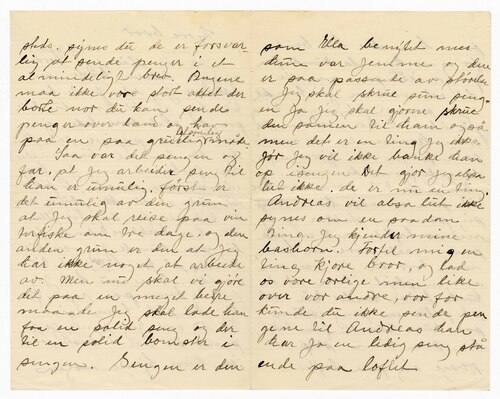 steds. synes du de er forsvar-
lig at sende penger i et
almindeligt brev. Pugene
maa ikke vore stort aktet der
borte nor du kan sende
penger over land og hav
paa en saa gruelig maade.
Saa var det sengen og
far, at jeg arbeider seng til
han er umulig, først er
det umulig av den grun,
at jeg skal reise paa vin
terfiske om tre dage, og den
anden grun er den at jeg
har ikke noget at arbeide
av. Men nu skal vi gjøre
det paa en meget bedre
maade jeg skal lade han
faa en solid seng og der
til en solid bomster i
sengen. Sengen er den
som Ella benyttet mes
dens var hjemme og den
er saa passende av størelse
Jeg skal skrue sun seng-
en ja jeg skal gjerne skrue
den sammen til ham ogsaa
men det er en ting jeg ikke
gjør jeg vil ikke banke han
op i sengen Det gjør jeg absa
lut ikke, de er nu en ting.
Andreas vil absalut ikke
synes om en saadan
ting. Jeg kjender mine
bashorn. Fortil mig en
ting kjere bror, og lad
os vore orlige men like
over vor andre, vor for
kunde du ikke sende pen
gene til Andreas han
har jo en ledig seng stå
ende paa loftet